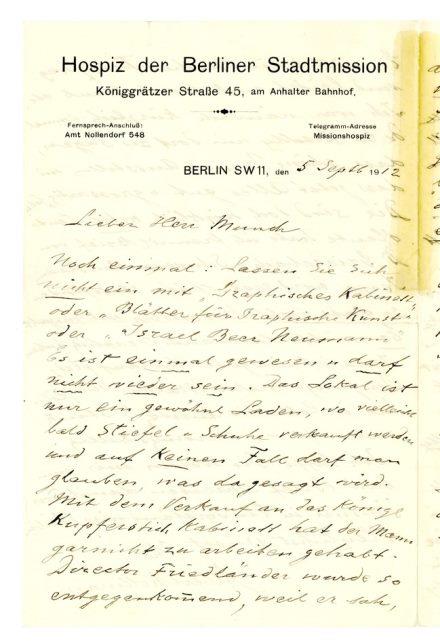 Hospiz der Berliner Stadtmission
Königgrätzer Straße 45, am Anhalter Bahnhof.
Fernsprech-Anschluß:
Amt Nollendorf 548
Telegramm-Adresse
Missionshospiz
BERLIN SW 11, den 5 Septb 1912
Lieber Herr Munch
Noch einmal: Lassen Sie sich
nicht ein mit „Graphisches Kabinett"
oder „Blätter für Graphische Kunst"
oder „Israel Beer Neumann"
Es ist einmal gewesen u darf
nicht wieder sein. Das Lokal ist
nur ein gewöhnl Laden, wo vielleicht
bald Stiefel u Schuhe verkauft werden
und auf keinen Fall darf man
glauben, was da gesagt wird.
Mit dem Verkauf an das Königl
Kupferstich Kabinett hat der Mann
garnicht zu arbeiten gehabt.
Director Friedländer wurde so
entgegenkomend, weil er sah,